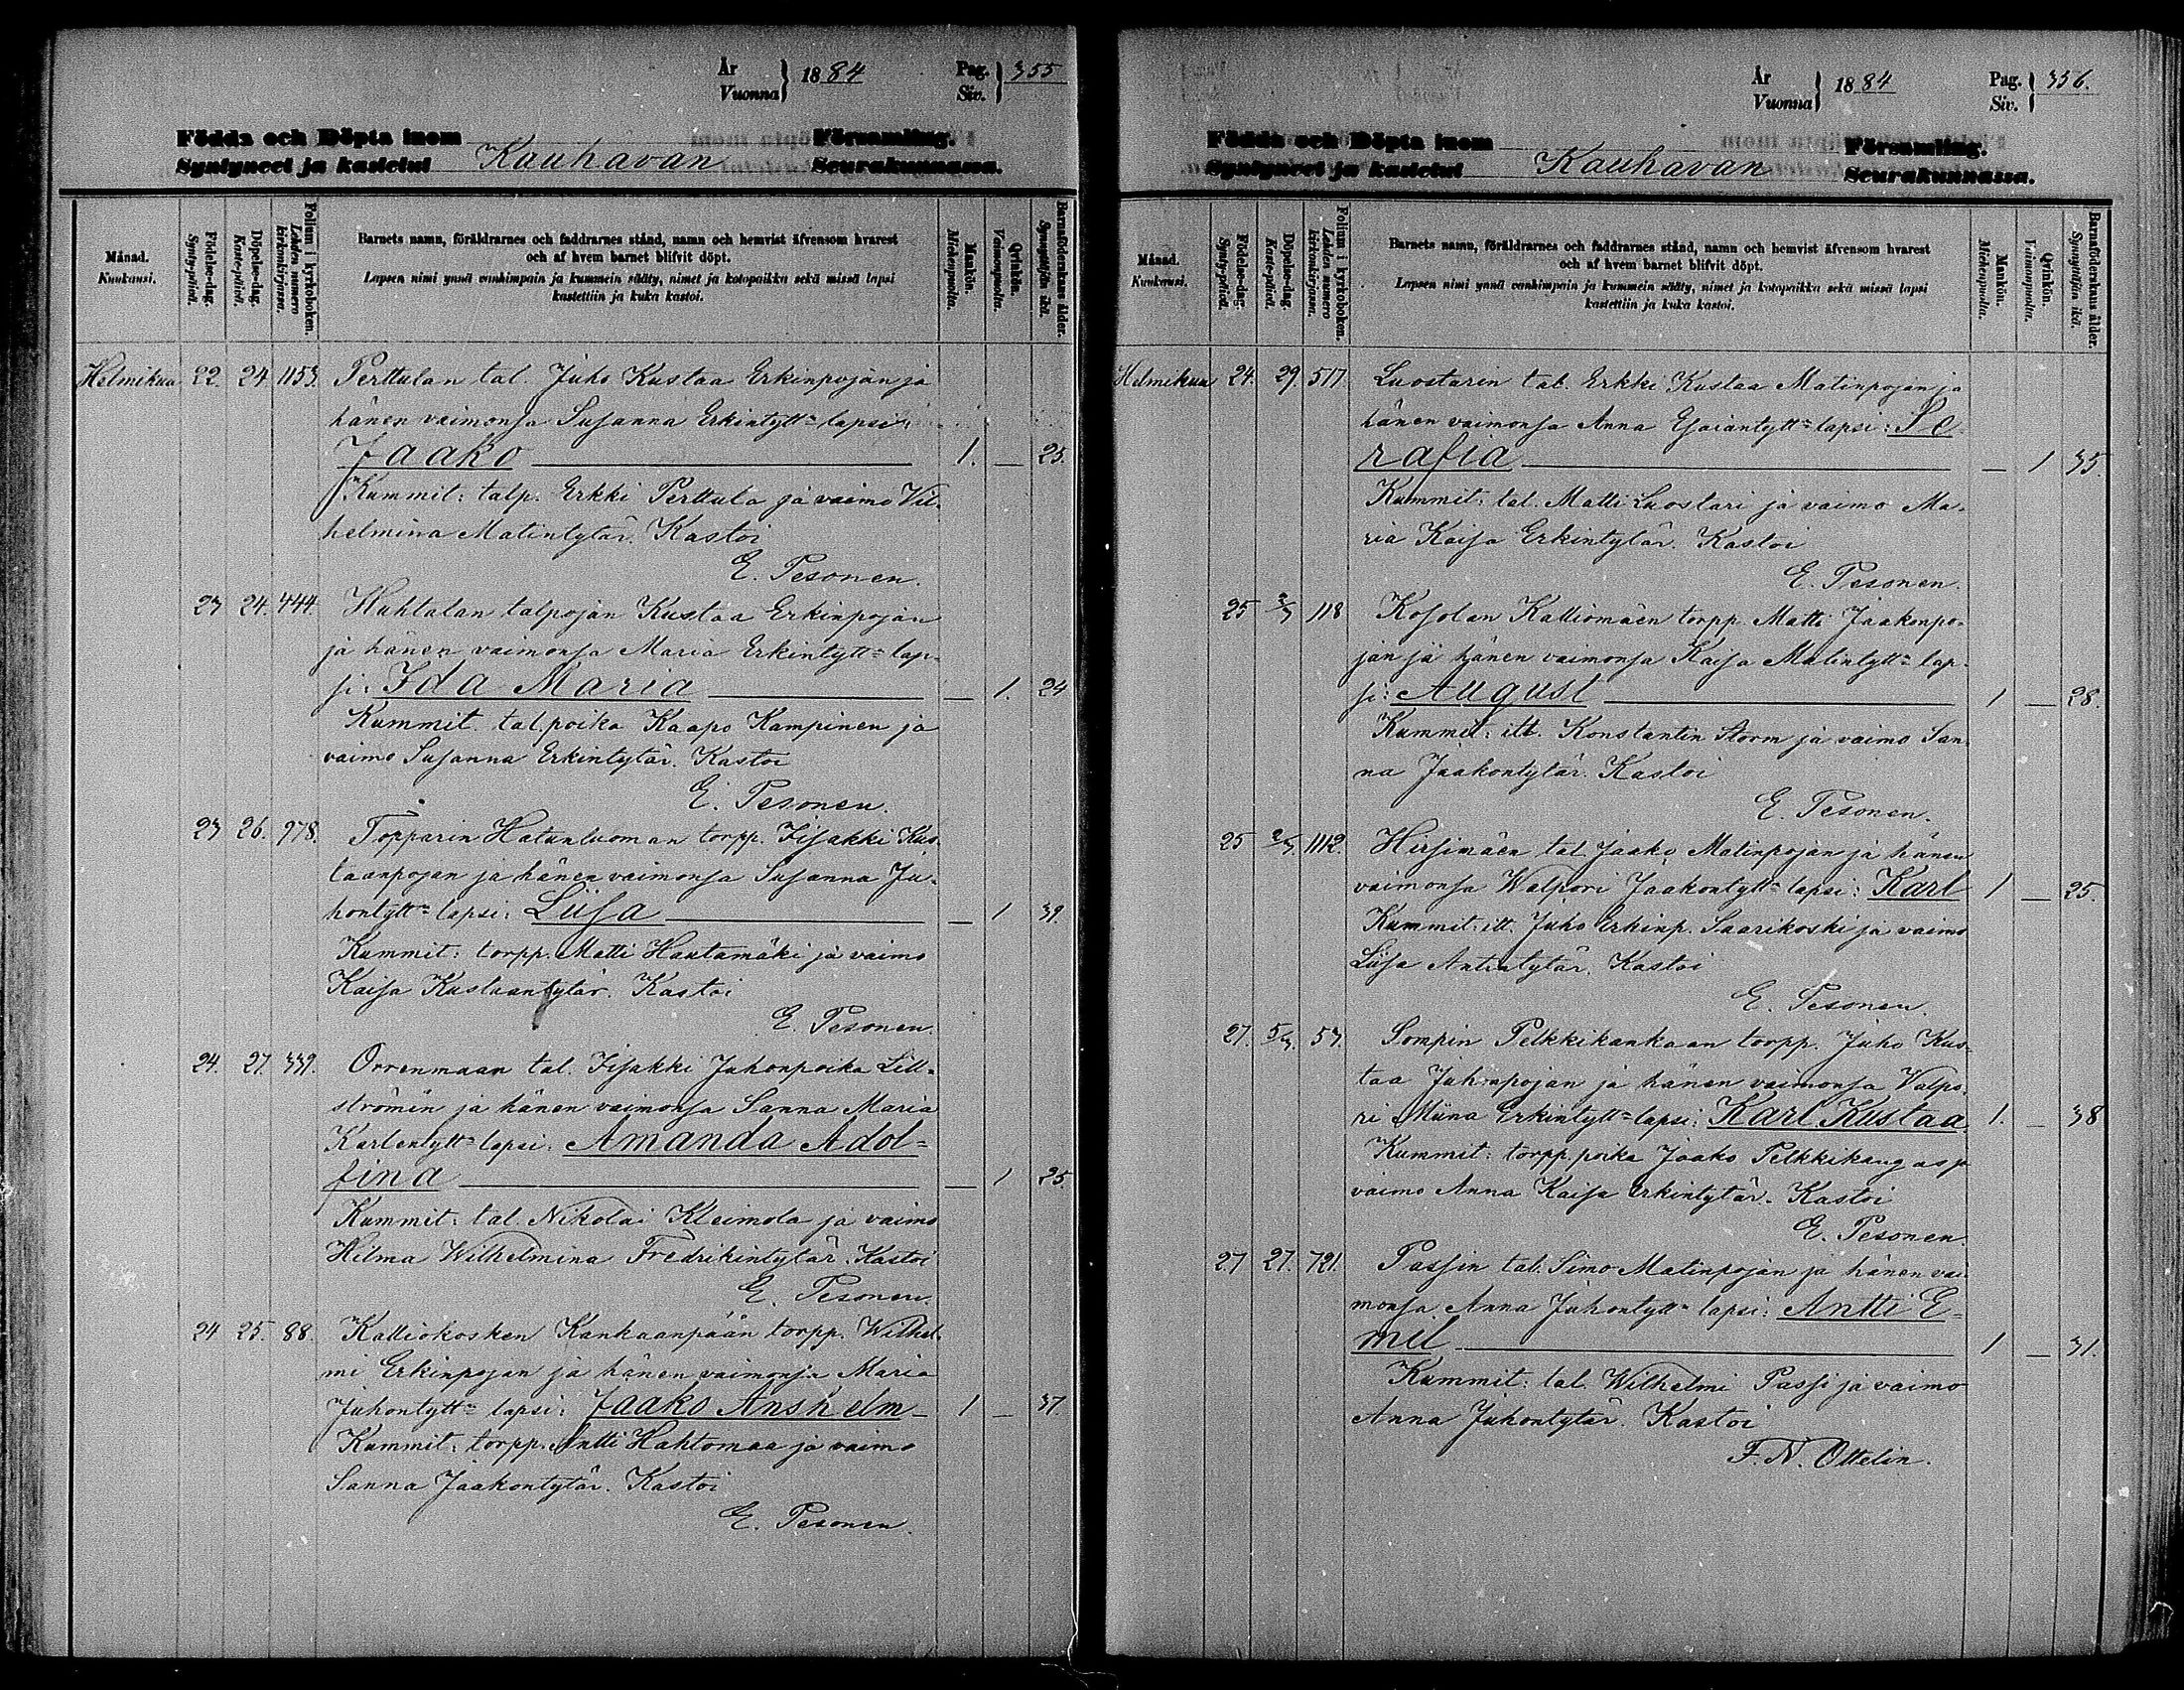 År
Vuonna } 1884
Pag.
Siv. } 355
Födda och Döpta inom
Syntyneet ja kastetut Kauhavan
Församling.
Seurakunnassa.
Månad.
Kuukausi.
Födelse-dag.
Synty-päivä.
Döpelse-dag.
Kaste-päivä.
Folium i kyrkoboken.
Lehden numero
kirkonkirjassa.
Barnets namn, föräldrarnes och faddrarnes stånd, namn och hemvist äfvensom hvarest
och af hvem barnet blifvit döpt.
Lapsen nimi ynnä vanhimpain ja kummein sääty, nimet ja kotopaikka sekä missä lapsi
kastettiin ja kuka kastoi.
Mankön.
Miehenpuolia.
Qvinkön.
Vaimonpuolia.
Barnaföderskans ålder.
Synnyttäjän ikä.
Helmikuu 22. 24 1153. Perttulan tal. Juho Kustaa Erkinpojan ja
hänen vaimonsa Susanna Erkintytt= lapsi:
Jaako 1. — 25.
Kummit: talp. Erkki Perttula ja vaimo Vil-
helmina Matintytär. Kastoi
E. Pesonen.
23 24. 444. Huhtalan talpojan Kustaa Erkinpojan
ja hänen vaimonsa Maria Erkintytt= lap-
si: Ida Maria — 1. 24
Kummit. tal.poika Kaapo Kampinen ja
vaimo Susanna Erkintytär. Kastoi
E. Pesonen.
23 26. 978. Topparin Hatunluoman torpp. Iisakki Kus-
taanpojan ja hänen vaimonsa Susanna Ju-
hontytt= lapsi: Liisa — 1 39.
Kummit: torpp. Matti Hautamäki ja vaimo
Kaisa Kustaantytär. Kastoi
E. Pesonen.
24. 27. 339. Orrenmaan tal. Iisakki Juhonpoika Lill-
strömin ja hänen vaimonsa Sanna Maria
Karlentytt= lapsi: Amanda Adol=
fina — 1 25.
Kummit: tal. Nikolai Kleimola ja vaimo
Hilma Wilhelmina Fredrikintytär. Kastoi
E. Pesonen.
24 25. 88. Kalliokosken Kankaanpään torpp. Wilhel-
mi Erkinpojan ja hänen vaimonsa Maria
Juhontytt= lapsi: Jaako Anshelm 1 — 37.
Kummit: torpp. Antti Hahtomaa ja vaimo
Sanna Jaakontytär. Kastoi
E. Pesonen.
År
Vuonna } 1884
Pag.
Siv. } 356.
Födda och Döpta inom
Syntyneet ja kastetut Kauhavan
Församling.
Seurakunnassa.
Månad.
Kuukausi.
Födelse-dag.
Synty-päivä.
Döpelse-dag.
Kaste-päivä.
Folium i kyrkoboken.
Lehden numero
kirkonkirjassa.
Barnets namn, föräldrarnes och faddrarnes stånd, namn och hemvist äfvensom hvarest
och af hvem barnet blifvit döpt.
Lapsen nimi ynnä vanhimpain ja kummein sääty, nimet ja kotopaikka sekä missä lapsi
kastettiin ja kuka kastoi.
Mankön.
Miehenpuolia.
Qvinkön.
Vaimonpuolia.
Barnaföderskans ålder.
Synnyttäjän ikä.
Helmikuu 24. 29. 517. Luostarin tal. Erkki Kustaa Matinpojan ja
hänen vaimonsa Anna Esaiantytt= lapsi: Se-
rafia — 1 35
Kummit: tal. Matti Luostari ja vaimo Ma-
ria Kaisa Erkintytär. Kastoi
E. Pesonen.
25 2/3 118 Kosolan Kalliomäen torpp. Matti Jaakonpo-
jan ja hänen vaimonsa Kaisa Matintytt= lap-
si: August 1 — 28.
Kummit: itt. Konstantin Storm ja vaimo San-
na Jaakontytär. Kastoi
E. Pesonen.
25 2/3. 1112. Hirsimäen tal. Jaako Matinpojan ja hänen
vaimonsa Walpori Jaakontytt= lapsi: Karl 1 — 25.
Kummit: itt. Juho Erkinp. Saarikoski ja vaimo
Liisa Antintytär. Kastoi
E. Pesonen.
27. 5/3. 53. Sompin Pelkkikankaan torpp. Juho Kus-
taa Juhonpojan ja hänen vaimonsa Valpo-
ri Miina Erkintytt= lapsi: Karl Kustaa. 1. — 38
Kummit: torpp.poika Jaako Pelkkikangas ja
vaimo Anna Kaisa Erkintytär. Kastoi
E. Pesonen.
27 27. 721. Passin tal. Simo Matinpojan ja hänen vai-
monsa Anna Juhontytt= lapsi: Antti E-
mil 1 — 31.
Kummit: tal. Wilhelmi Passi ja vaimo
Anna Juhontytär. Kastoi
F. N. Ottelin.